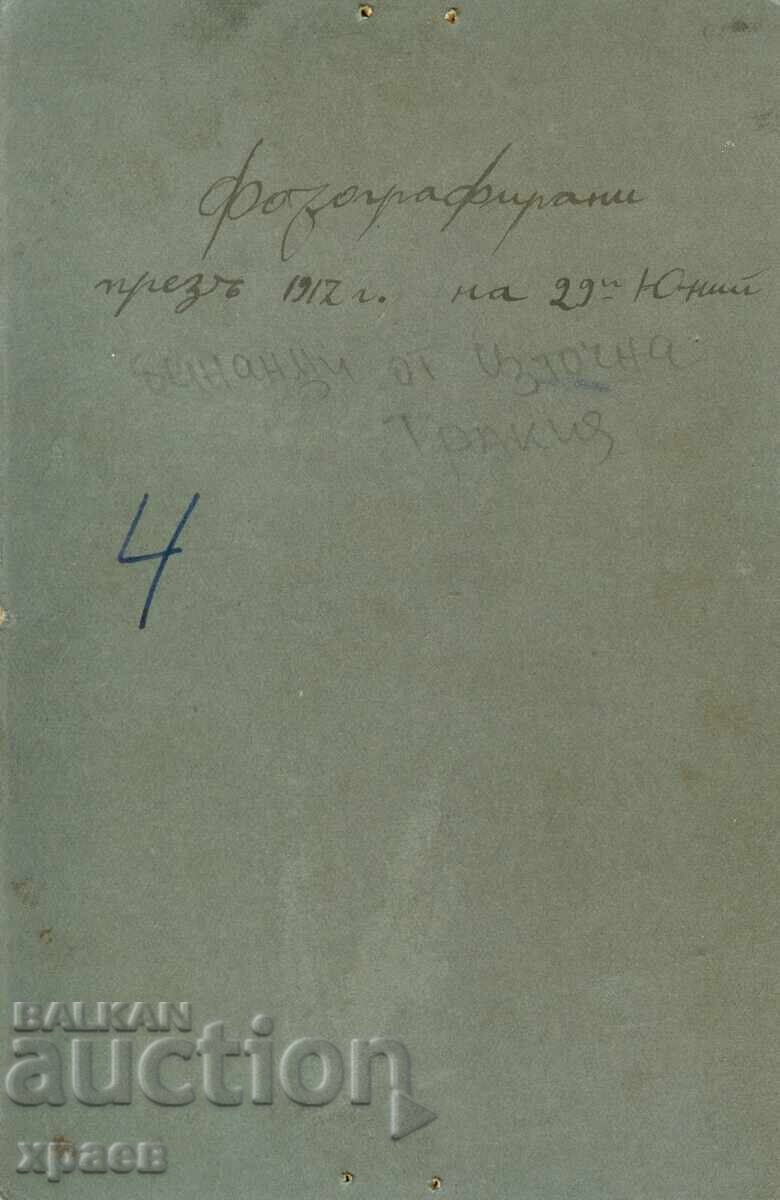 фотографирани
презъ 1912 г. на 29ий Юний
бежанци от Източна
Тракия
4
BALKAN
auction
храев